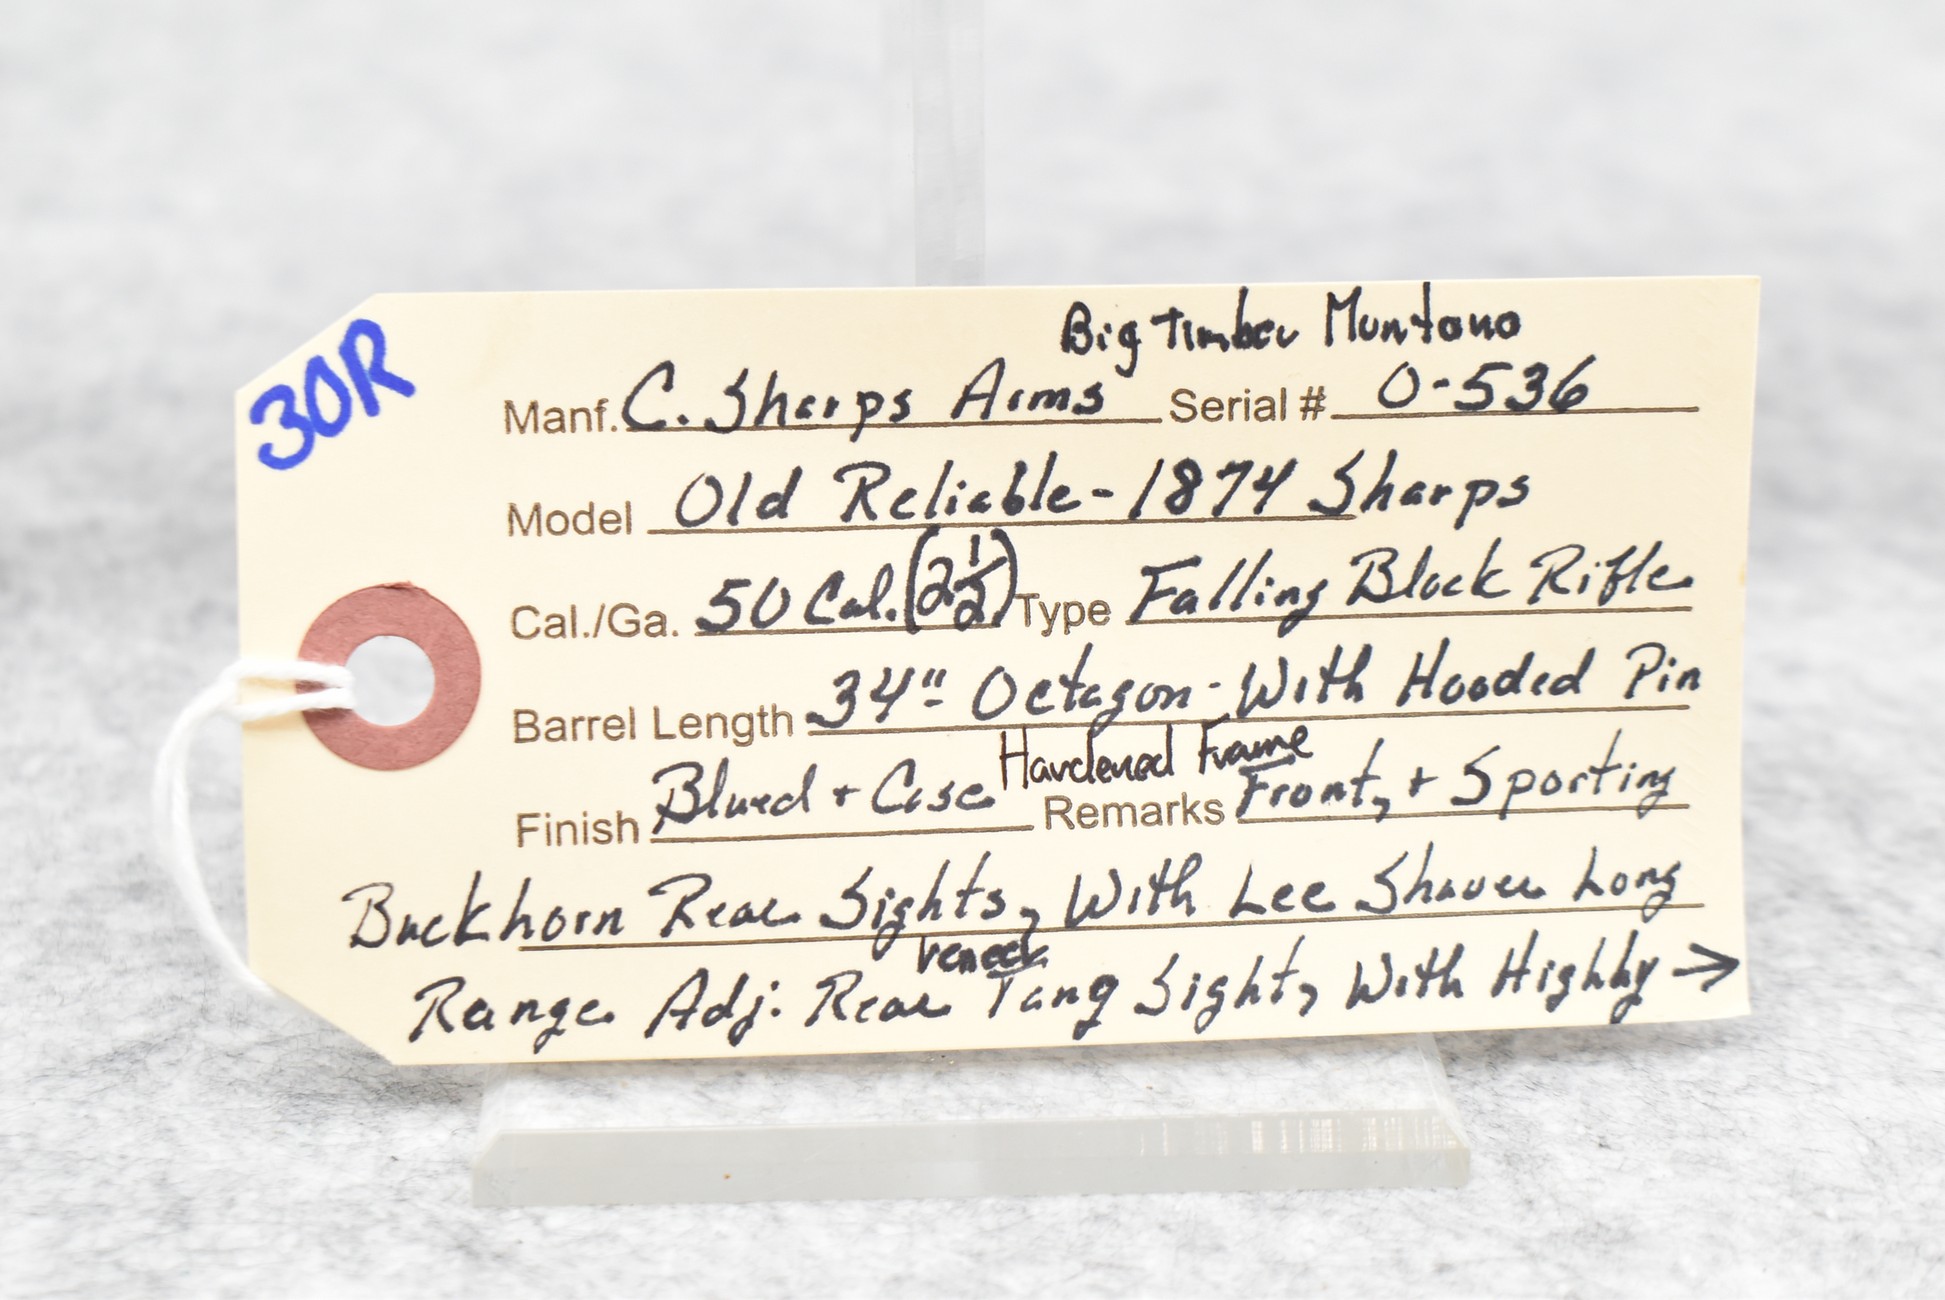 30R
Big Timber Montana
Manf. C. Sharps Arms Serial # 0-536
Model Old Reliable - 1874 Sharps
Cal./Ga. 50 Cal. (2 1/2) Type Falling Block Rifle
Barrel Length 34" Octagon - With Hooded Pin
Hardened Frame
Finish Blued + Case Remarks Front, + Sporting
Buckhorn Rear Sights, With Lee Shaver Long
Range Adj. Rear Tang Sight, With Highly →